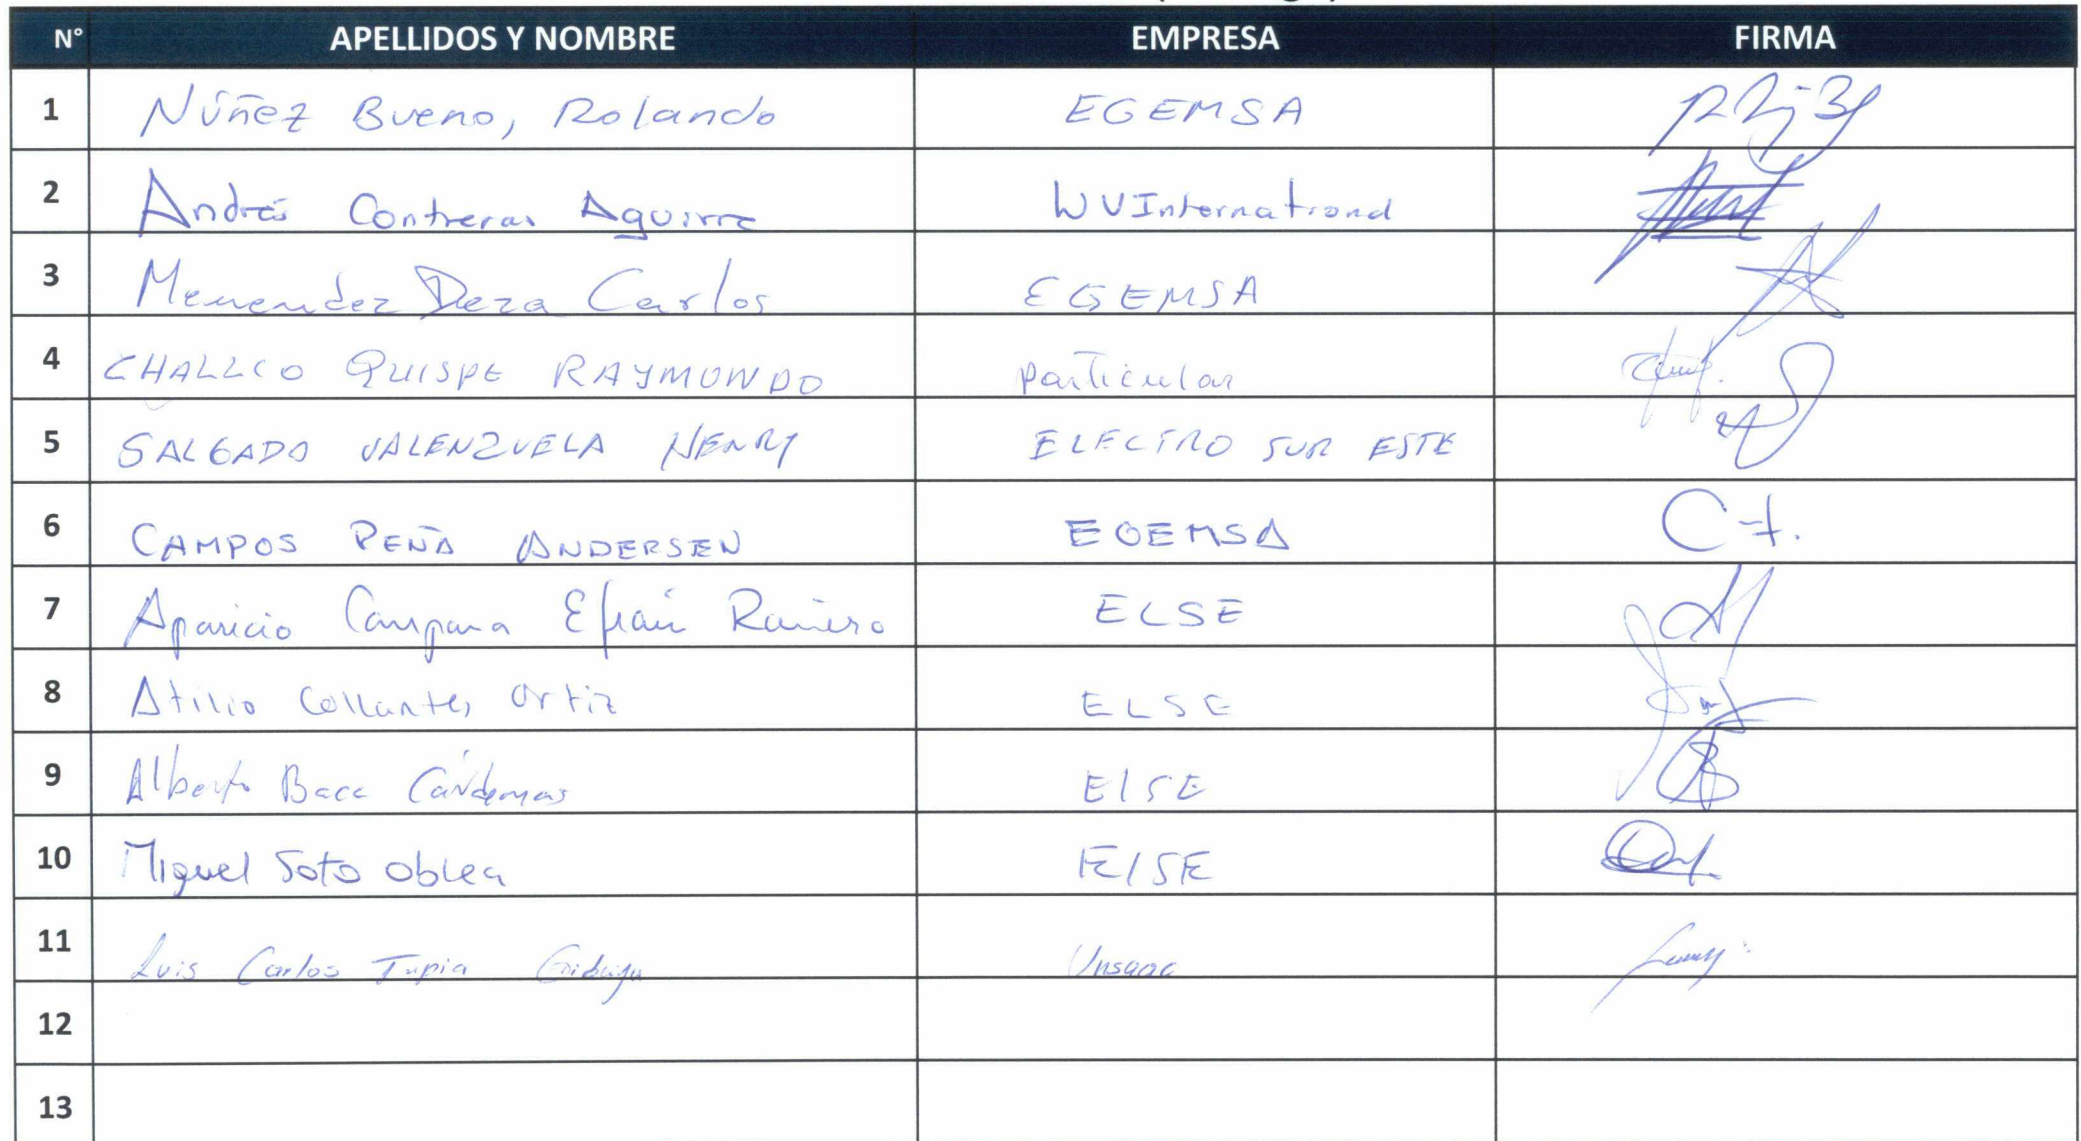 N° APELLIDOS Y NOMBRE EMPRESA FIRMA
1 Núñez Bueno, Rolando EGEMSA
2 Andrés Contreras Aguirre WVInternational
3 Menendez Deza Carlos EGEMSA
4 CHALLCO QUISPE RAYMUNDO particular
5 SALGADO VALENZUELA HENRY ELECTRO SUR ESTE
6 CAMPOS PEÑA ANDERSEN EGEMSA
7 Aparicio Campana Efraín Ramiro ELSE
8 Atilio Collantes Ortiz ELSE
9 Alberto Baca Cárdenas ElSE
10 Miguel Soto Oblea ElSE
11 Luis Carlos Tapia Unsaac
12
13